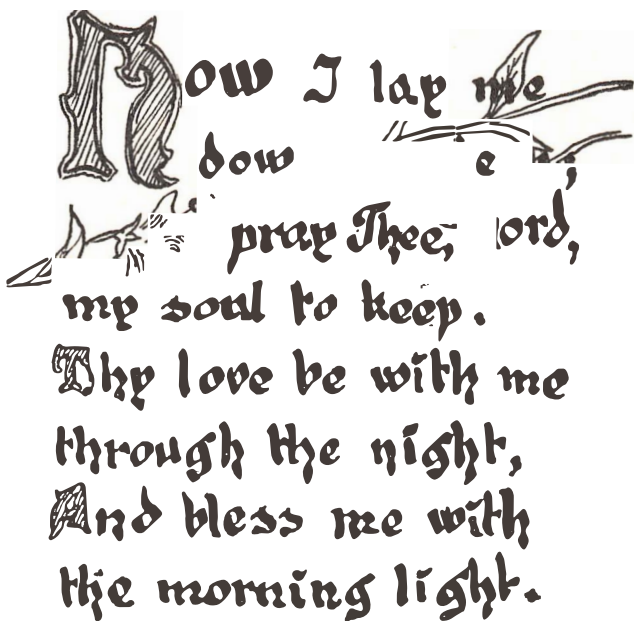 Now I lay me
dow e ;
pray Thee, ord,
my soul to keep.
Thy love be with me
through the night,
And bless me with
the morning light.